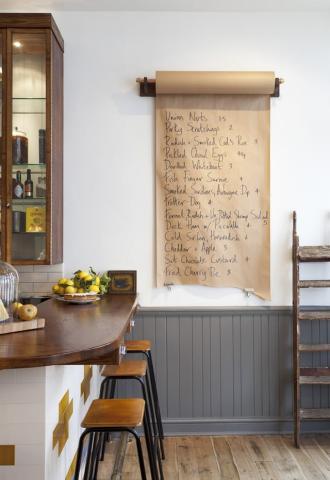 Union Nuts 1.5
Porky Scratchings 2
Radish + Smoked Cod's Roe 3
Pickled Quail Eggs
Devilled Whitebait 3
Fish Finger Sarnie 4
Smoked Sardines, Aubergine Dip 4
Trotter Dog 4
Fennel, Radish + Potted Shrimp Salad 5
Duck Ham w/ Piccalilli 4
Cold Sirloin, Horseradish 4
Cheddar + Apple 5
Salt Chocolate Custard 4
Fried Cherry Pie 3